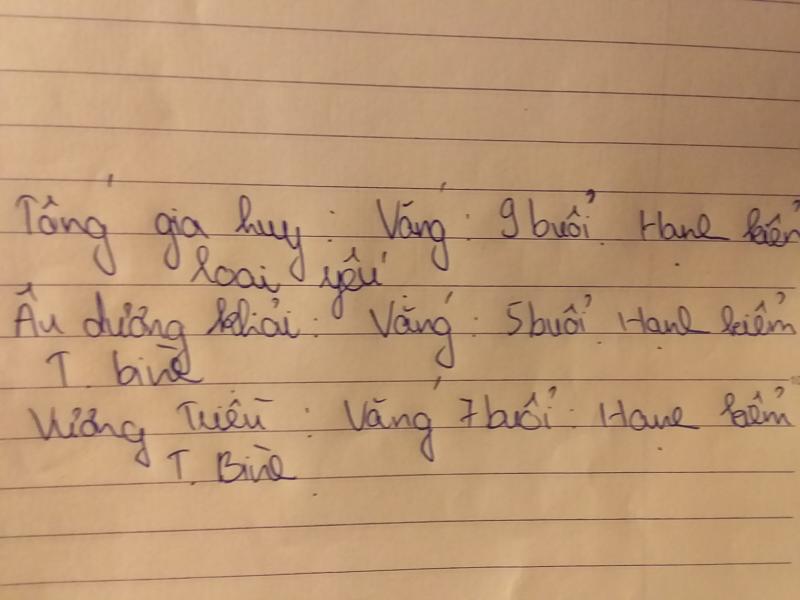 Tống gia huy : Vắng : 9 buổi. Hạnh kiểm
loại yếu
Âu dương khải : Vắng : 5 buổi. Hạnh kiểm
T. bình
Vương Triều : Vắng 7 buổi : Hạnh kiểm
T. Bình